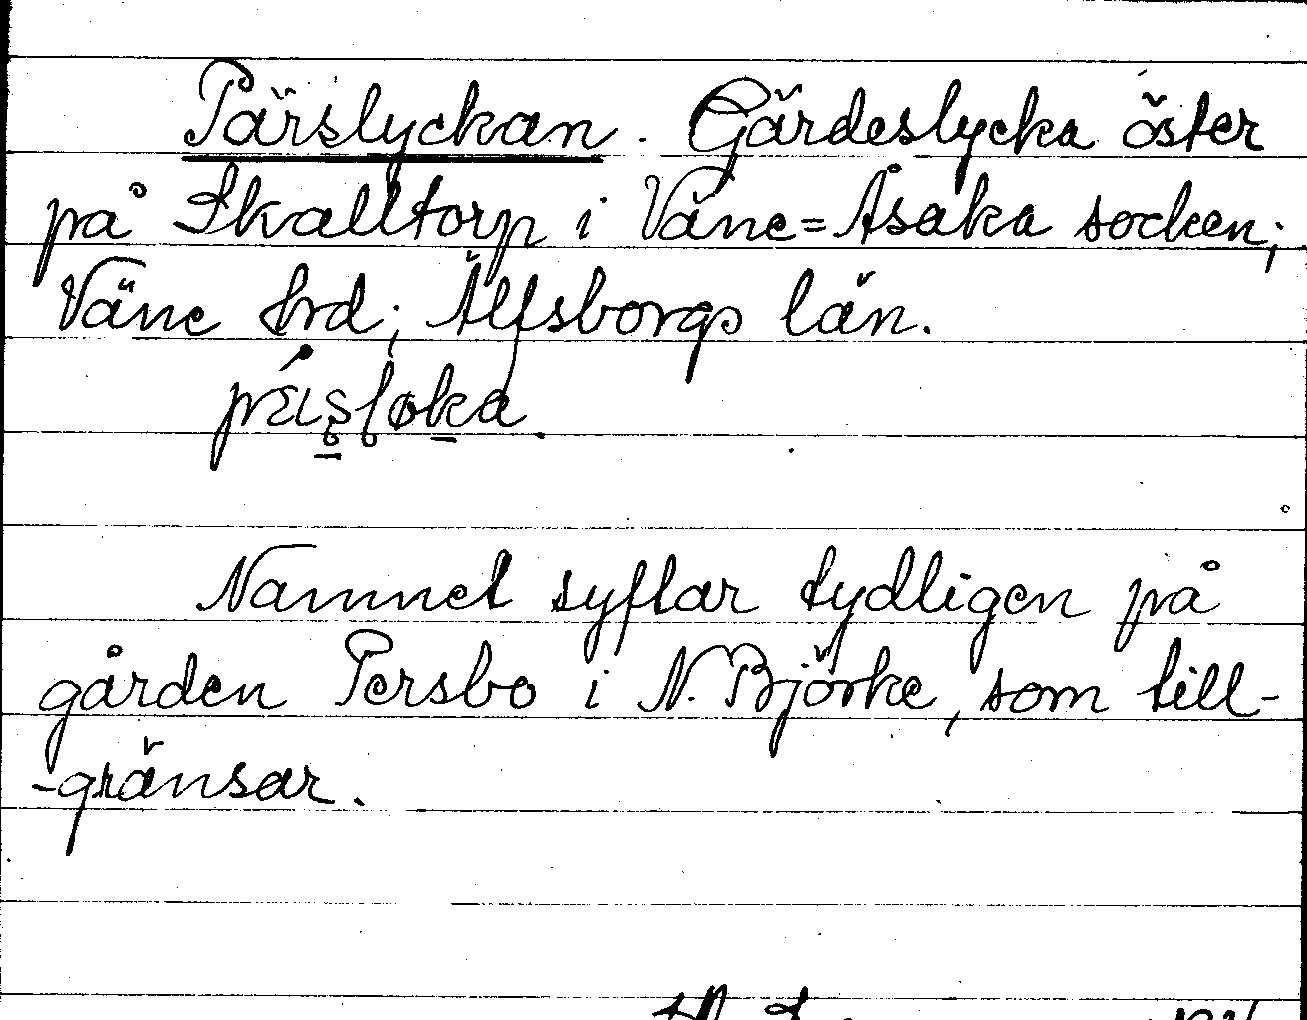 Pärslyckan. Gärdeslycka öster
på Skalltorp i Väne=Åsaka socken;
Väne hrd; Älfsborgs län.
Namnet syftar tydligen på
gården Persbo i N. Björke, som till-
-gränsar.